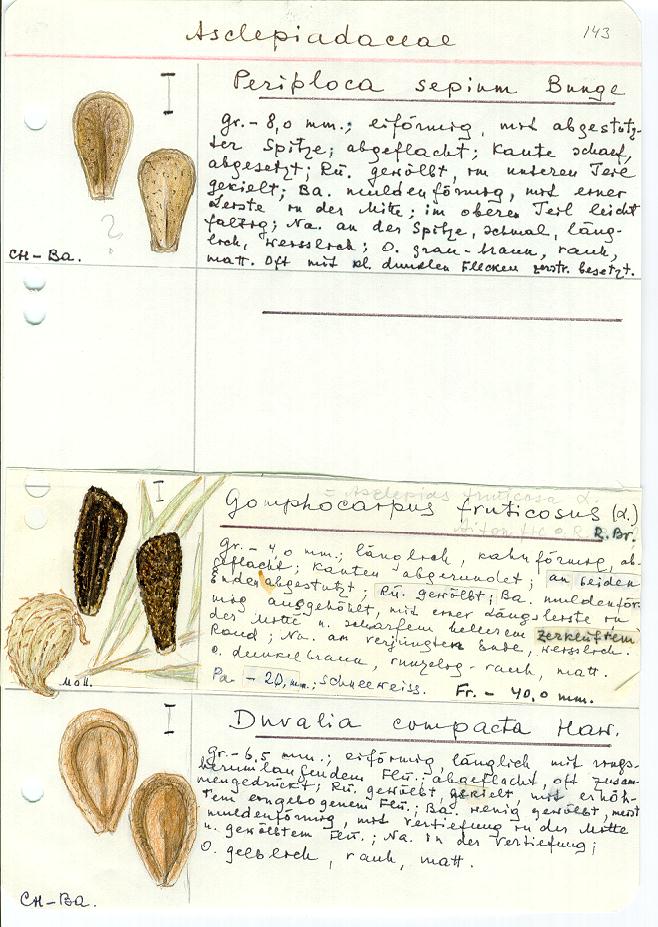 Asclepiadaceae
143
Periploca sepium Bunge
Gr. - 8,0 mm.; eiförmig, mit abgestutz-
ter Spitze; abgeflacht; Kante scharf,
abgesetzt; Rü. gewölbt, im unteren Teil
gekielt; Ba. muldenförmig, mit einer
Leiste in der Mitte; im oberen Teil leicht
faltig; Na. an der Spitze, schmal, läng-
lich, weisslich; O. grau-braun, rauh,
matt. Oft mit kl. dunklen Flecken zerstr. besetzt.
?
CH-Ba.
= Asclepias fruticosa L.
Gomphocarpus fruticosus (L.)
Aiton f.
R. Br.
Gr. - 4,0 mm.; länglich, kahnförmig, ab-
geflacht; Kanten abgerundet; an beiden
Enden abgestutzt; Rü. gewölbt; Ba. muldenför-
mig ausgehöhlt, mit einer Längsleiste in
der Mitte u. scharfem hellerem zerklüftem
Rand; Na. am verjüngten Ende, weisslich.
O. dunkelbraun, runzelig-rauh, matt.
Pa. - 20,mm.; schneeweiss. Fr. - 40,0 mm.
Moll.
Duvalia compacta Haw.
Gr. - 6,5 mm.; eiförmig, länglich mit rings-
herumlaufendem Flü.; abgeflacht, oft zusam-
mengedrückt; Rü. gewölbt, gekielt, mit erhöh-
tem eingebogenem Flü.; Ba. wenig gewölbt, meist
muldenförmig, mit Vertiefung in der Mitte
u. gewölbtem Flü.; Na. in der Vertiefung;
O. gelblich, rauh, matt.
CH-Ba.